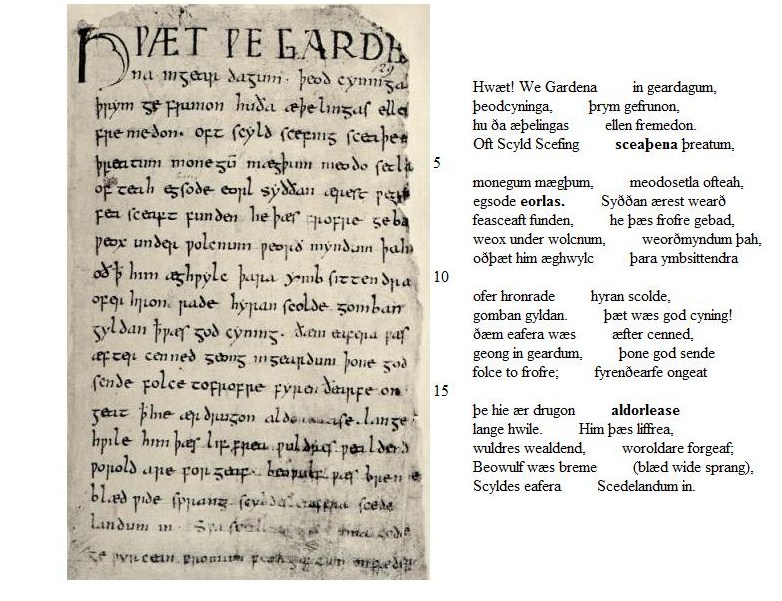 HǷÆT ǷE GARDE
29
na ingear dagum. þeod cyninga
þrym ge frunon huða æþelingas elle
fre medon. oft scyld scefing sceaþe
þreatum monegū mægþum meodo setla
of teah egsode eorl syððan ærest
fea sceaft funden he þæs frofre geba
ƿeox under ƿolcnum ƿeorð myndum þah
oð þ̄ him æghƿylc þara ymb sittendra
ofer hron rade hyran scolde gomban
gyldan þ̄ ƿæs god cyning. ðæm eafera ƿæs
æfter cenned geong ingeardum þone god
sende folce tofrofre fyren ðearfe on
geat þ̄ hie ær drugon lange
hƿile him þæs lif frea ƿuldres ƿealdend
ƿorold are for geaf. beoƿulf ƿæs breme
blæd ƿide sprang scyldes eafera scede
landum in. Sƿa gode
ge ƿyrcean fromum
Hwæt! We Gardena in geardagum,
þeodcyninga, þrym gefrunon,
hu ða æþelingas ellen fremedon.
Oft Scyld Scefing sceaþena þreatum,
5
monegum mægþum, meodosetla ofteah,
egsode eorlas. Syððan ærest wearð
feasceaft funden, he þæs frofre gebad,
weox under wolcnum, weorðmyndum þah,
oðþæt him æghwylc þara ymbsittendra
10
ofer hronrade hyran scolde,
gomban gyldan. þæt wæs god cyning!
ðæm eafera wæs æfter cenned,
geong in geardum, þone god sende
folce to frofre; fyrenðearfe ongeat
15
þe hie ær drugon aldorlease
lange hwile. Him þæs liffrea,
wuldres wealdend, woroldare forgeaf;
Beowulf wæs breme (blæd wide sprang),
Scyldes eafera Scedelandum in.